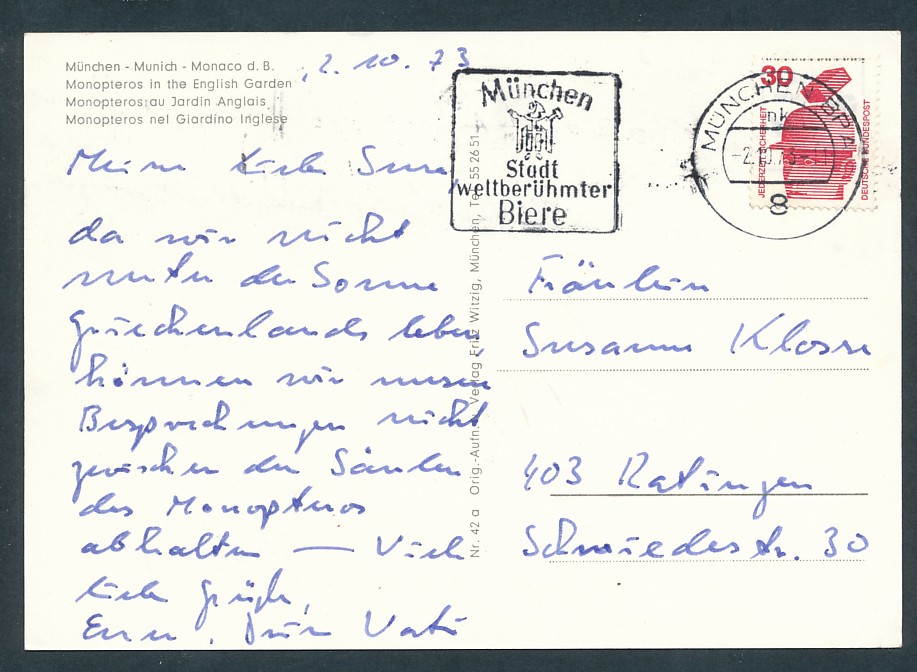 München - Munich - Monaco d. B.
Monopteros in the English Garden
Monopteros au Jardin Anglais
Monopteros nel Giardino Inglese
2. 10. 73
München
Stadt
weltberühmter
Biere
30
JEDERZEIT SICHERHEIT
DEUTSCHE BUNDESPOST
MÜNCHEN BPA
nk
-2.10.73-
8
Meine liebe Suse
da wir nicht
unter der Sonne
Griechenlands leben
können wir unsere
Besprechungen nicht
zwischen den Säulen
des Monopteros
abhalten — Viele
liebe Grüße,
Dein Vati
Nr. 42 a Orig.-Aufn. u. Verlag Fritz Witzig, München, Tel. 55 26 51
Fräulein
Susanne Klosse
403 Ratingen
Schmiedestr. 30